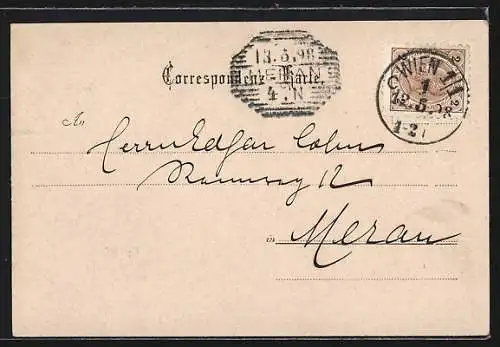 13.5.98
MERAN
4.N
Correspondenz-Karte.
WIEN 1/1
1
12.5.98
An
Herrn Edgar Cohn
Rennweg 12
in Meran